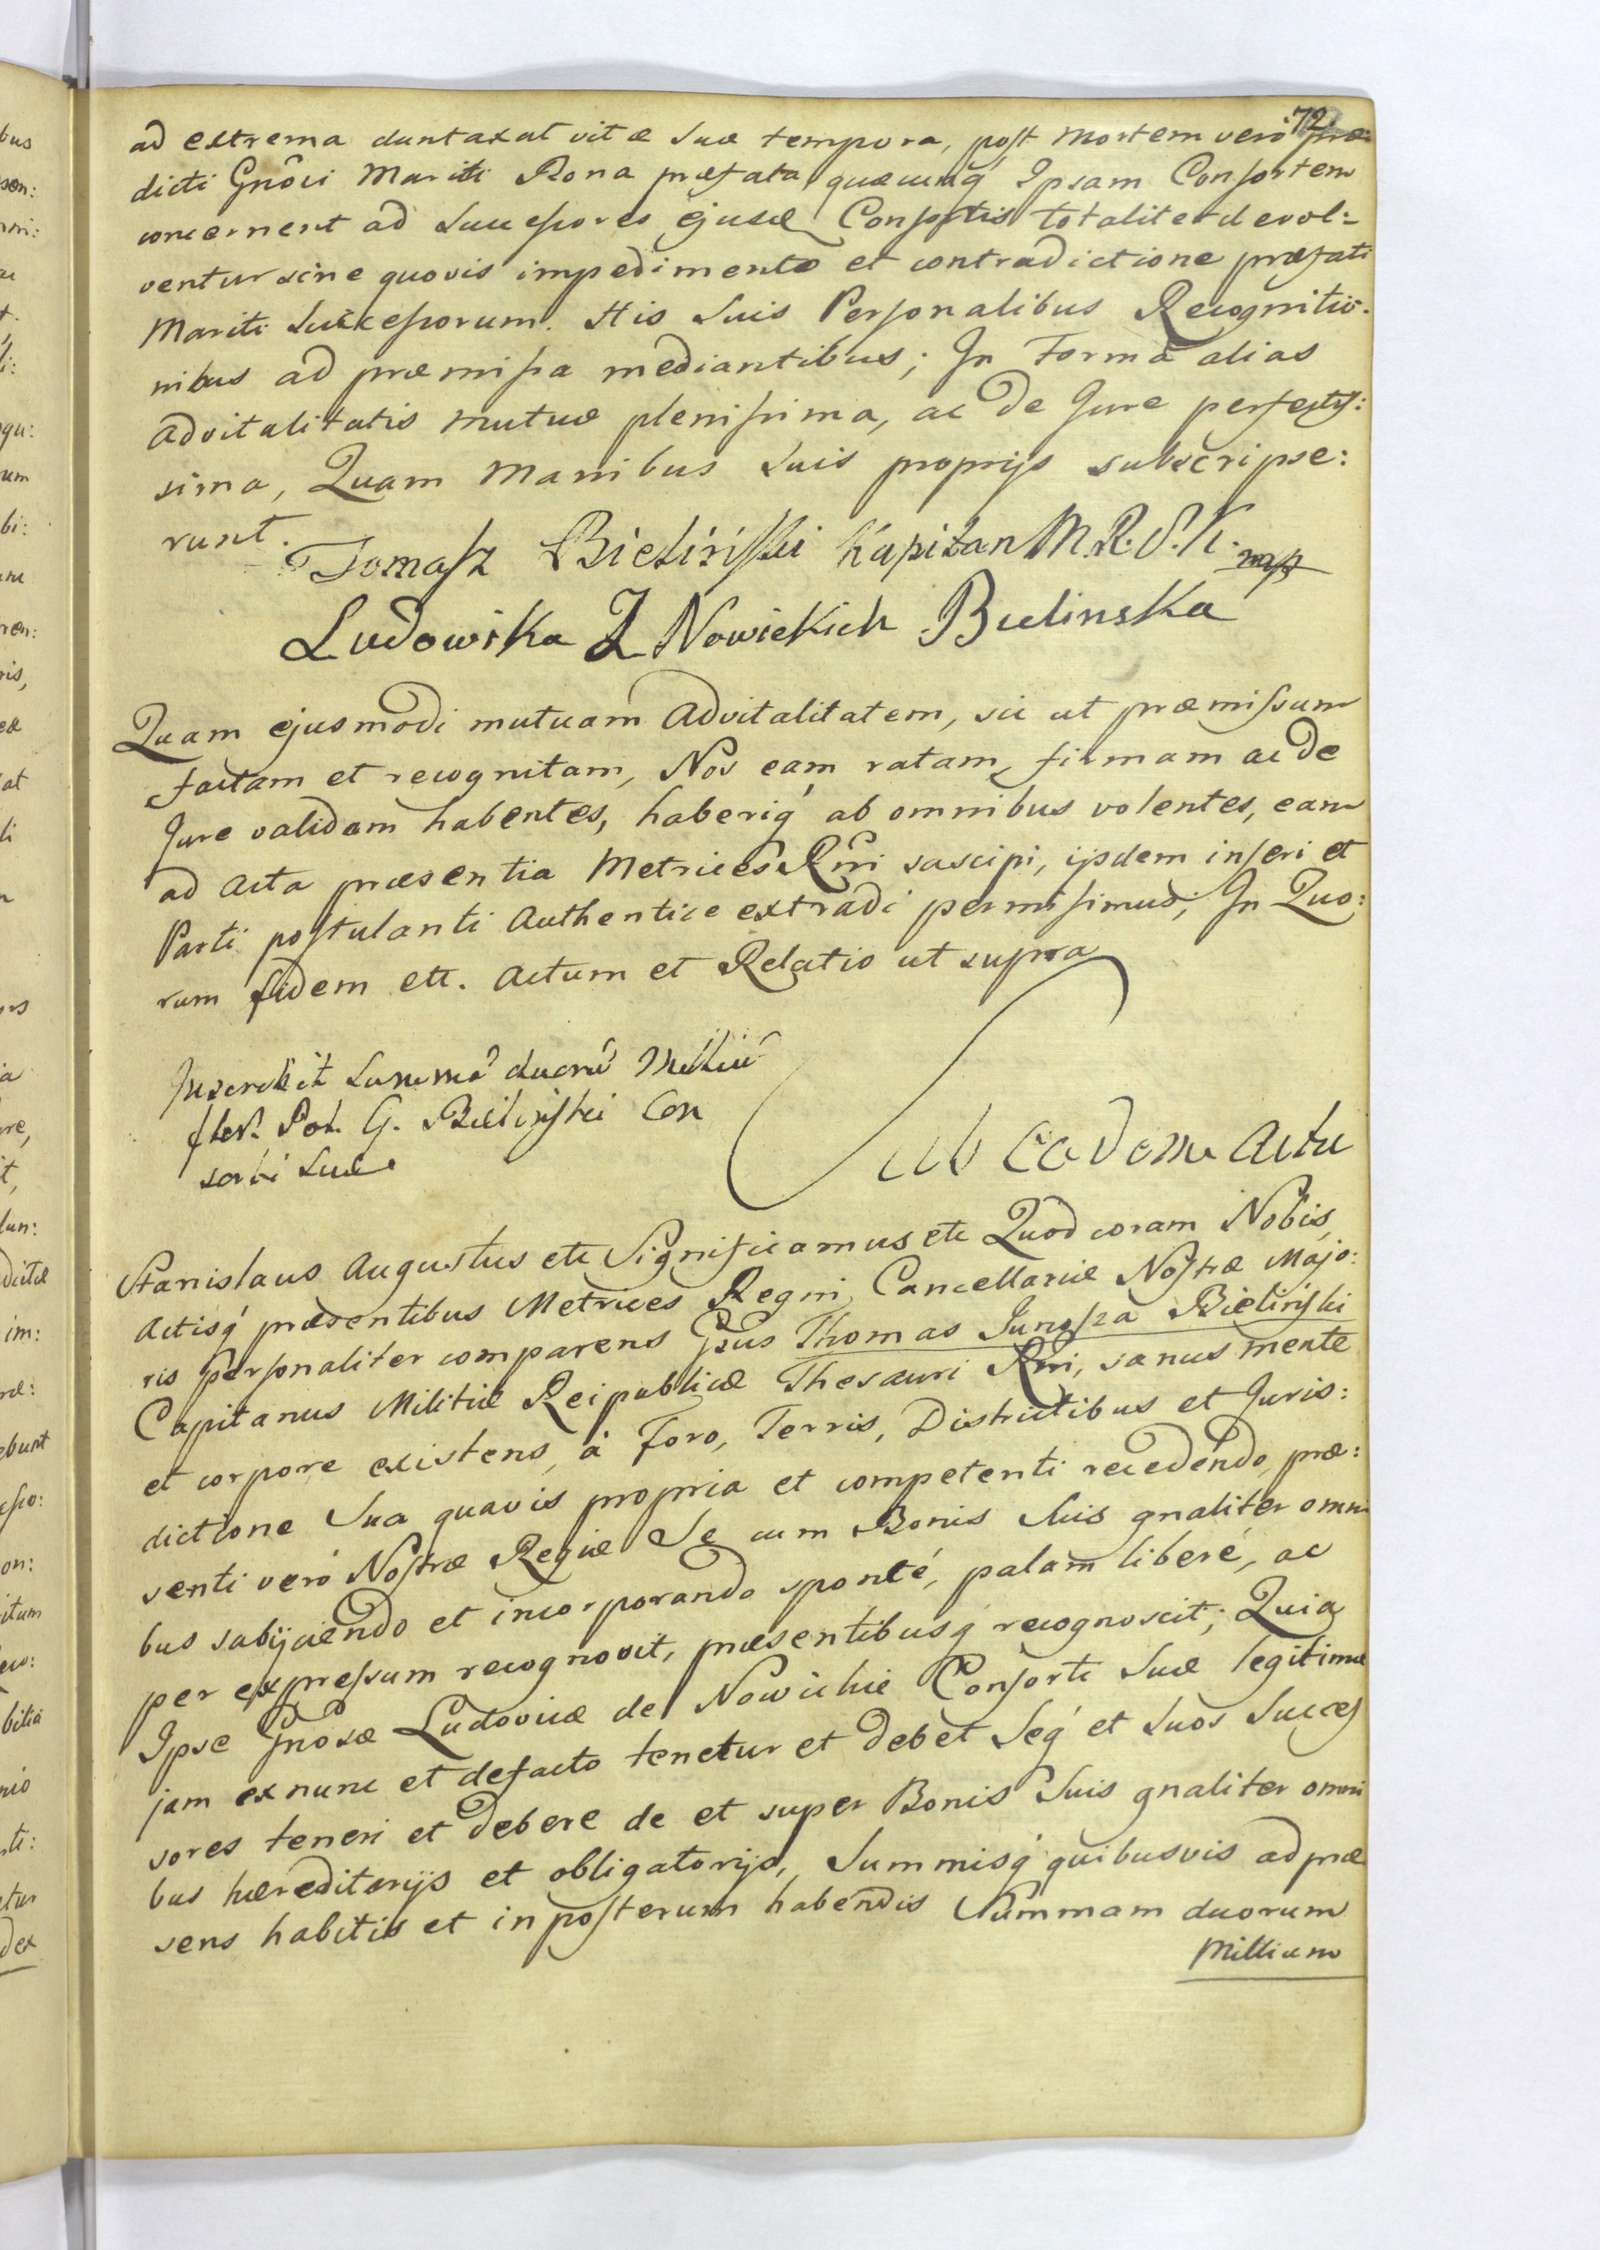 72.
ad extrema duntaxat vitæ suæ tempora, post Mortem verò præ:
dicti Gnôsi Mariti Bona præfata quæcunq́ Ipsam Consortem
concernent ad Successores ejusd Consortis totaliter devol:
ventur sine quovis impedimento et contradictione præfati
Mariti Successorum. His Suis Personalibus Recognitio:
nibus ad præmissa mediantibus; In Forma alias
Advitalitatis Mutuæ plenissima, ac de Jure perfectis:
sima, Quam Manibus Suis proprijs subscripse:
runt.
Tomasz Bieliński Kapitan M. R. S. K. mp
Ludowika Z Nowickich Bielinska
Quam ejusmodi mutuam Advitalitatem, sic ut præmissum
factam et recognitam, Nos eam ratam, firmam ac de
Jure validam habentes, haberiq́ ab omnibus volentes, eam
ad Acta præsentia Metrices Rni suscipi, ijsdem inseri et
Parti postulanti Authentice extradi permisimus; In Quo:
rum fidem ett. Actum et Relatio ut supra
Inscribit Summã duorũ Milliũ
flor. Pol. G. Bieliński Con
sorti Suæ
Sub eodem Actu
Stanislaus Augustus etc Significamus etc Quod coram Nobis,
Actisq́ præsentibus Metrices Regni, Cancellariæ Nostræ Majo:
ris Personaliter comparens Gsus Thomas Junosza Bieliński
Capitanus Militiæ Reipublicæ Thesauri Rni, sanus mente
et corpore existens, à Foro, Terris, Districtibus et Juris:
dictione Sua quavis propria et competenti recedendo, præ:
senti verò Nostræ Regiæ Se cum Bonis Suis gnaliter omni
bus subijciendo et incorporando sponté, palam liberé, ac
per expressum recognovit, præsentibusq́ recognoscit; Quia
Ipse Gnosæ Ludovicæ de Nowickie Consorti Suæ legitimæ
jam ex nunc et defacto tenetur et debet Seq́ et Suos Succes
sores teneri et debere de et super Bonis Suis gnaliter omni
bus hæreditarijs et obligatorijs, Summisq́ quibusvis ad præ
sens habitis et in posterum habendis Summam duorum
Millium